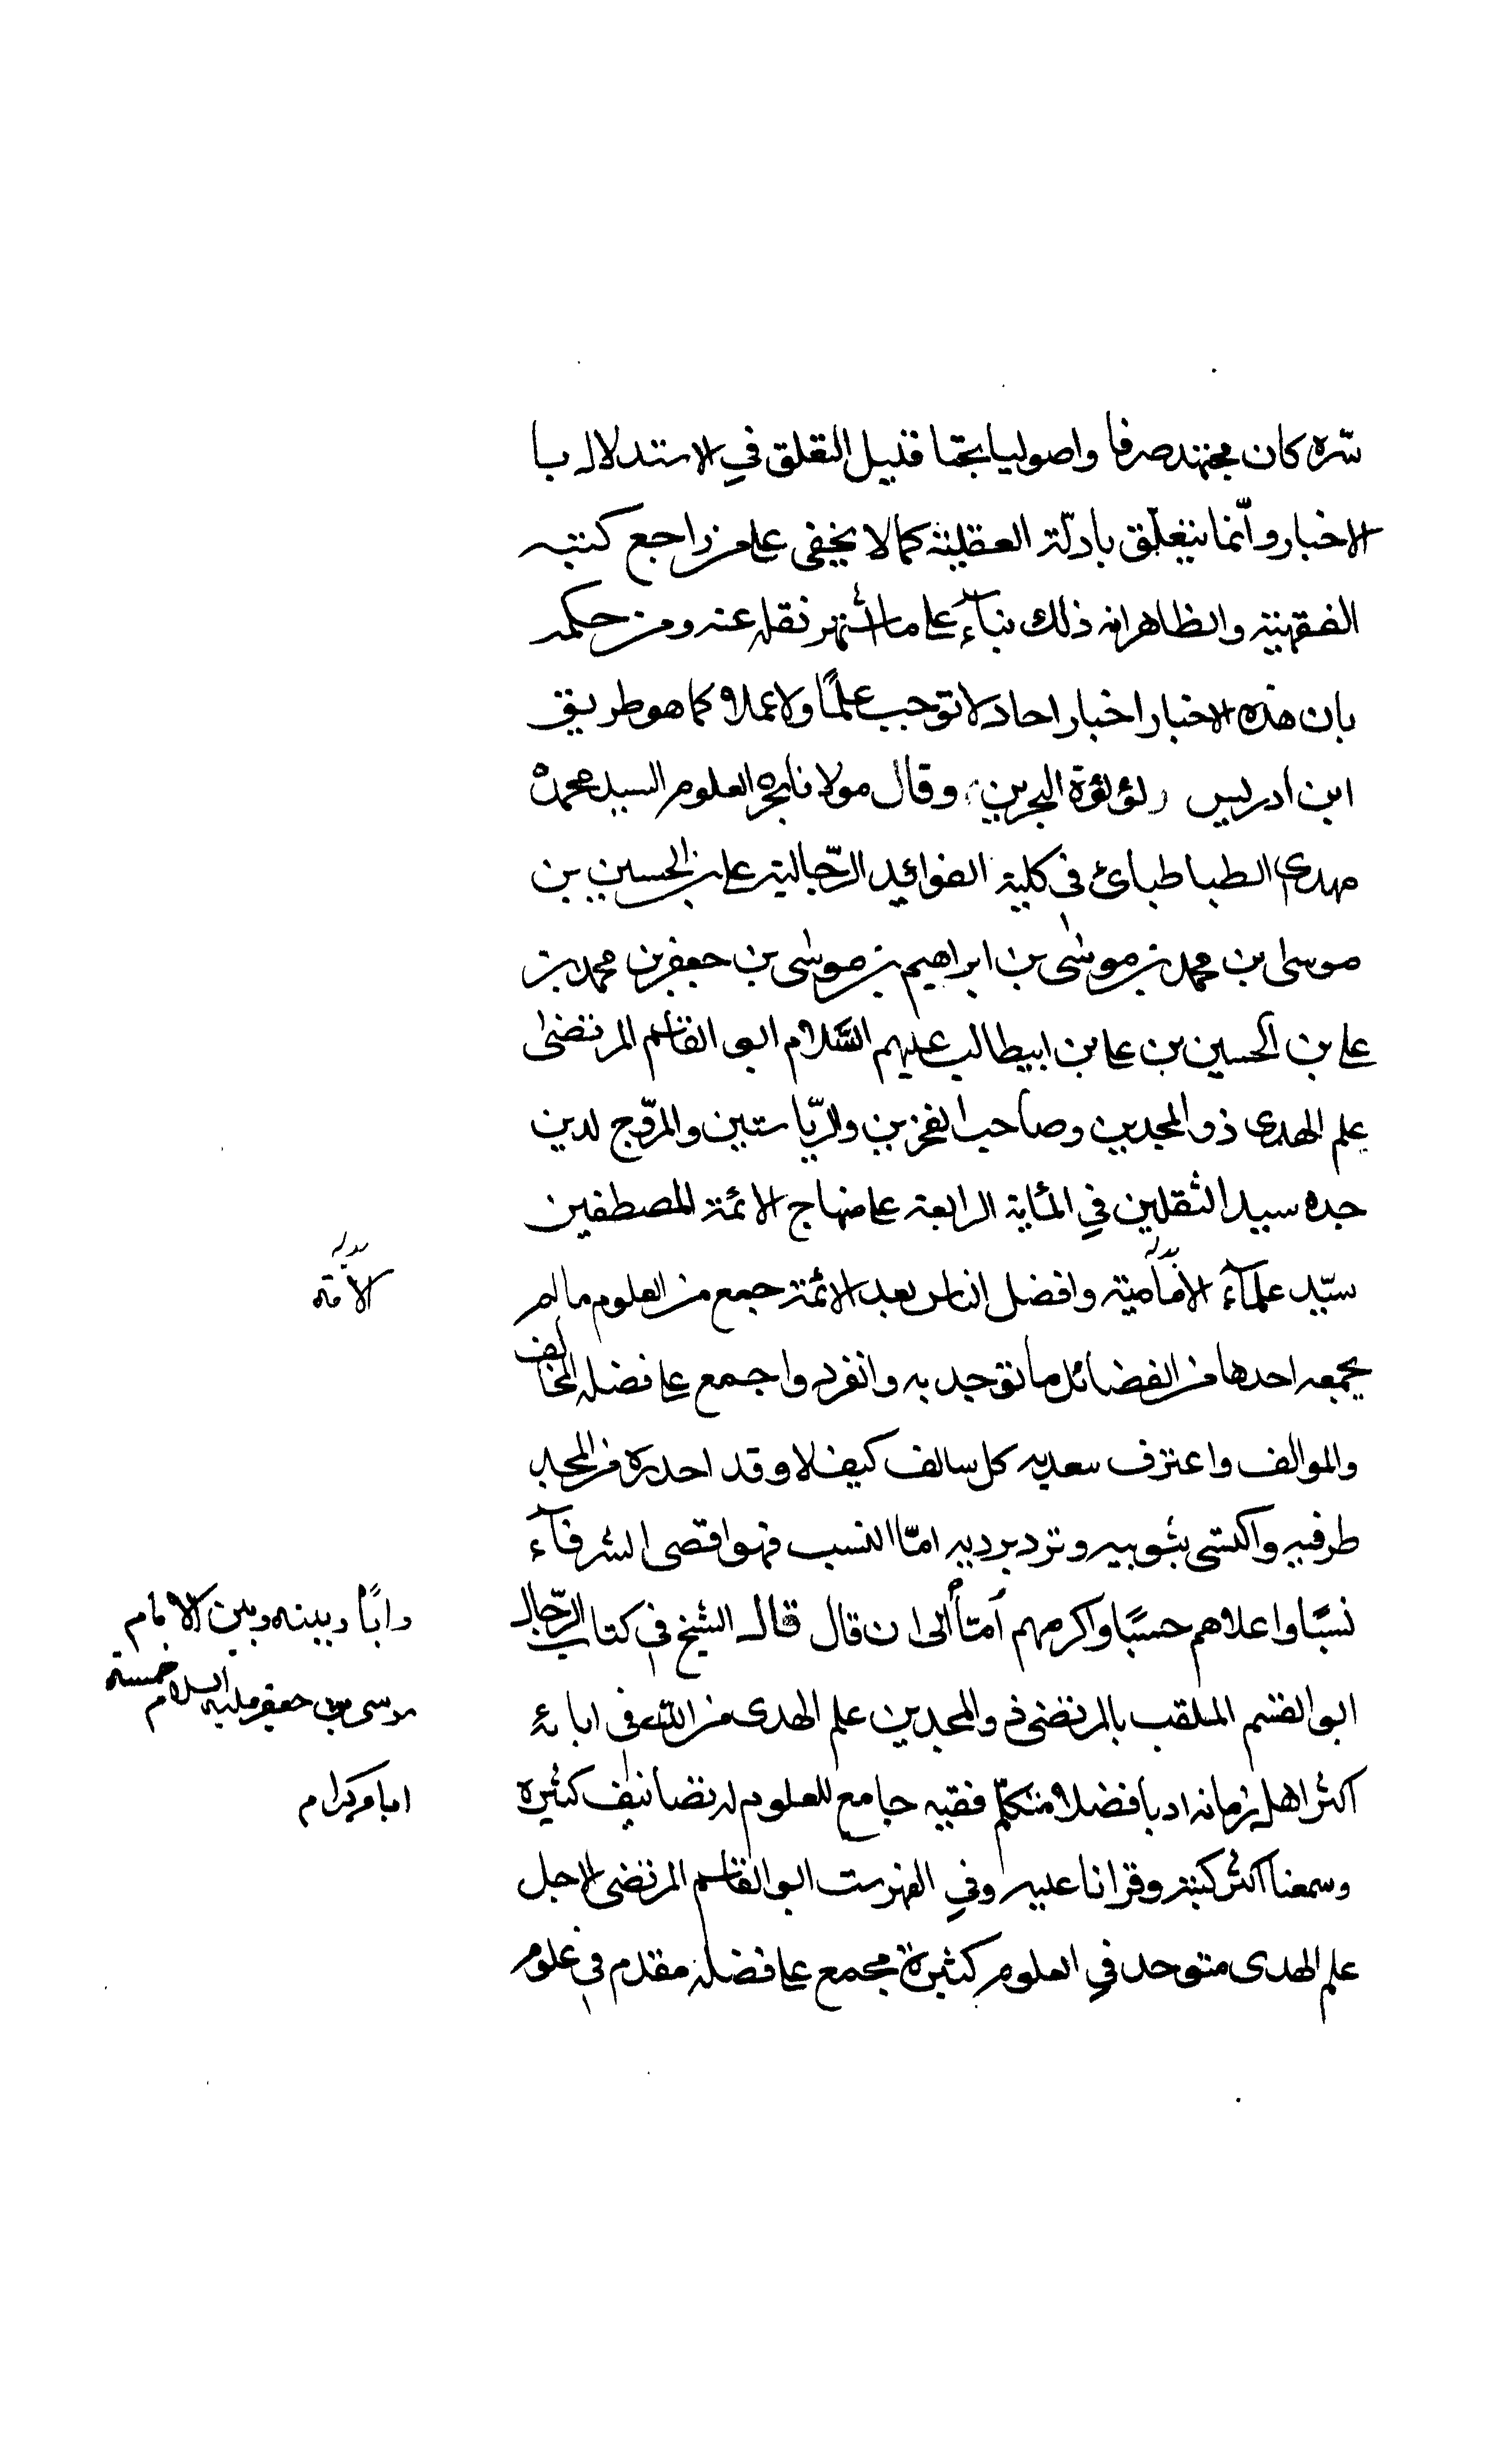 سّره كان مجتهد صرفا واصوليا بحتا قليل التعلق في الاستدلال با
الاخبار وانّما يتعلّق بادلّة العقلية كما لا يخفى على من راجع كتبه
الفقهية والظاهر انه ذلك بناءً على ما اشتهر نقله عنه ومن حكمه
بان هذه الاخبار اخبار احاد لا توجب علمًا ولا عملا كما هو طريق
ابن ادريس لؤلؤة البحرين وقال مولانا بحر العلوم السيد محمد
مهدى الطباطبائى فى كلية الفوائد الرّجالية على بن الحسين بن
موسى بن محمد بن موسى بن ابراهيم بن موسى بن جعفر بن محمد بن
على بن الحسين بن على بن ابيطالب عليهم السّلام ابو القاسم المرتضى
علم الهدى ذو المجدين وصاحب الفخرين والرّياستين والمروّج لدين
جده سيد الثقلين في المائة الرابعة على منهاج الائمة المصطفين
سيّد علمآء الامامية وافضل الناس بعد الائمة جمع من العلوم ما لم
الامّة
يجمعه احدها من الفضائل ما توحد به وانفرد واجمع على فضله المخالف
والموالف واعترف سعديه كل سالف كيف لا وقد احدره من المجد
طرفيه واكتسى بثوبيه وتردبرديه امّا النسب فهو اقصى الشرفآء
نسبًا واعلاهم حسبًا واكرمهم امّاً الى ان قال قال الشيخ في كتاب الرّجال
وابًا وبينه وبين الامام
موسى بن جعفر عليه السلام خمسة
ابو القسم الملقب بالمرتضى ذو المجدين علم الهدى من الله فى ابائه
اباء كرام
اكثر اهل زمانه ادبا فضلا متكلّم فقيه جامع للعلوم له تصانيف كثيرة
وسمعنا اكثر كتبه وقرانا عليه وفي الفهرست ابو القاسم المرتضى الاجل
علم الهدى متوحد في العلوم كثيرة مجمع على فضله مقدم في علوم